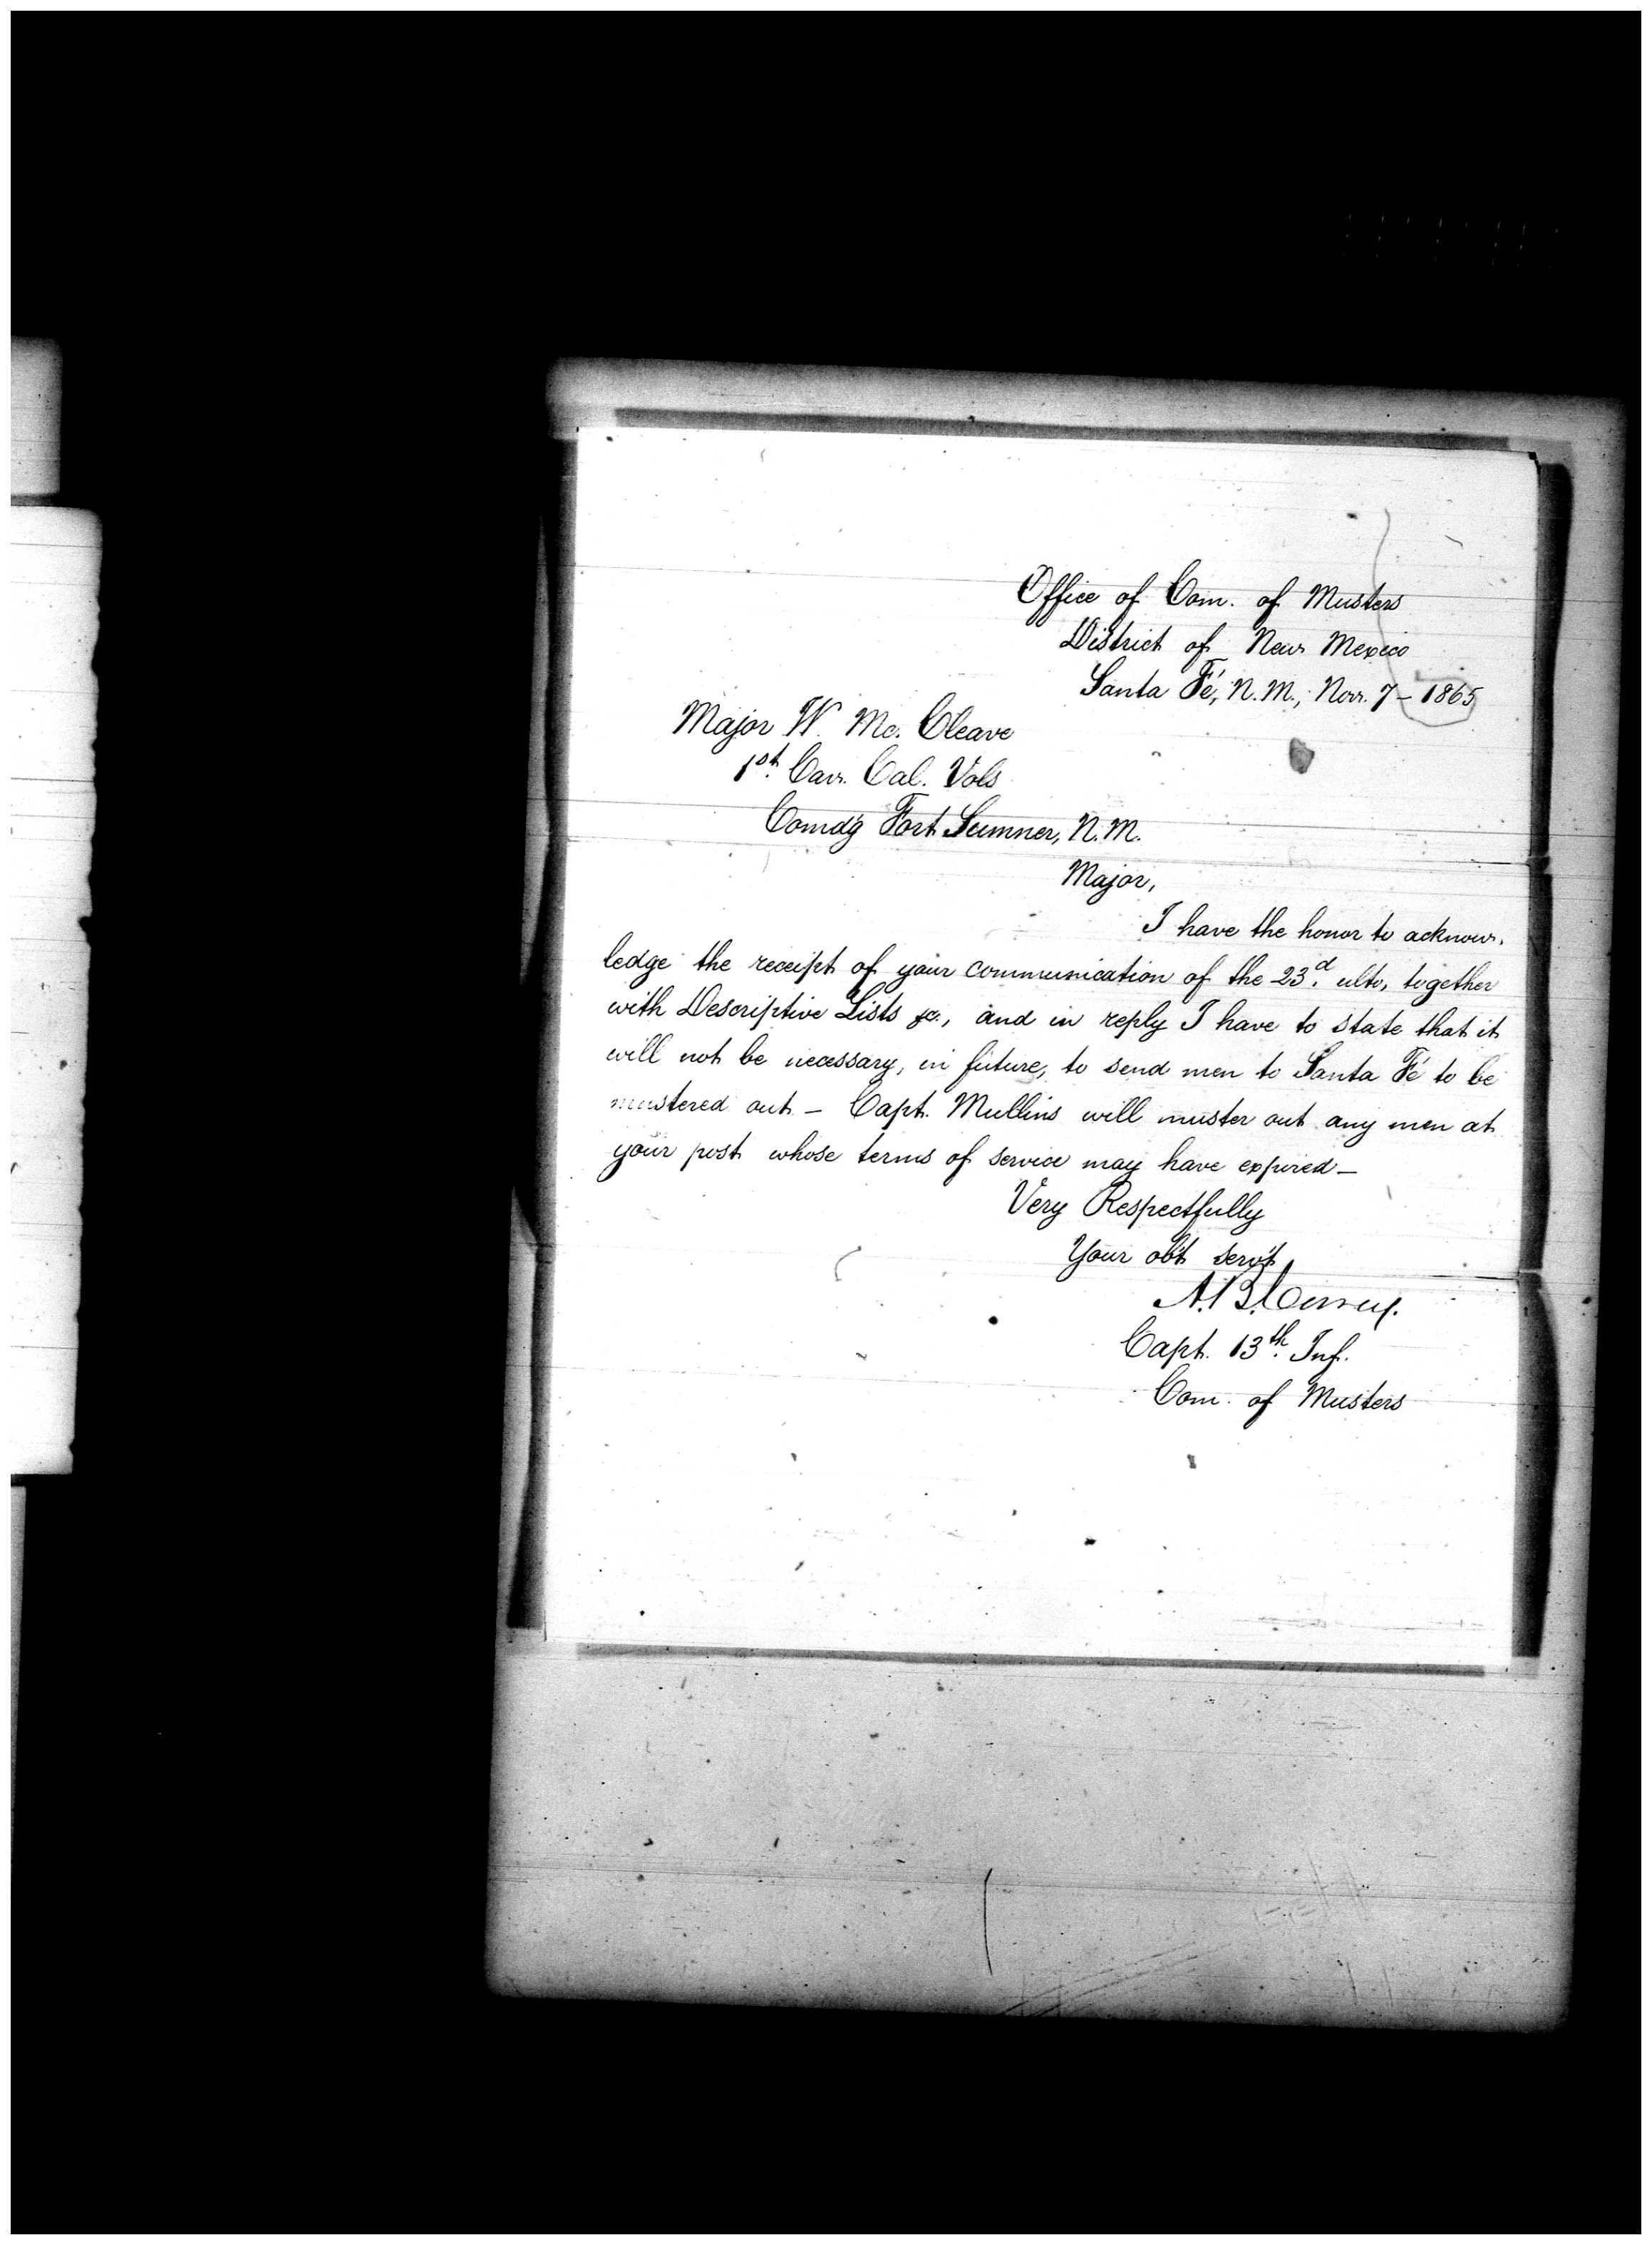 Office of Com. of Musters
District of New Mexico
Santa Fé, N.M., Nov. 7 – 1865
Major W. Mc. Cleave
1st. Cav. Cal. Vols
Comd'g Fort Sumner, N.M.
Major,
I have the honor to acknow-
ledge the receipt of your communication of the 23d. ulto, together
with Descriptive Lists &c., and in reply I have to state that it
will not be necessary, in future, to send men to Santa Fé to be
mustered out – Capt. Mullins will muster out any men at
your post whose terms of service may have expired –
Very Respectfully
Your ob't serv't
A. B. Carey.
Capt. 13th. Inf.
Com. of Musters